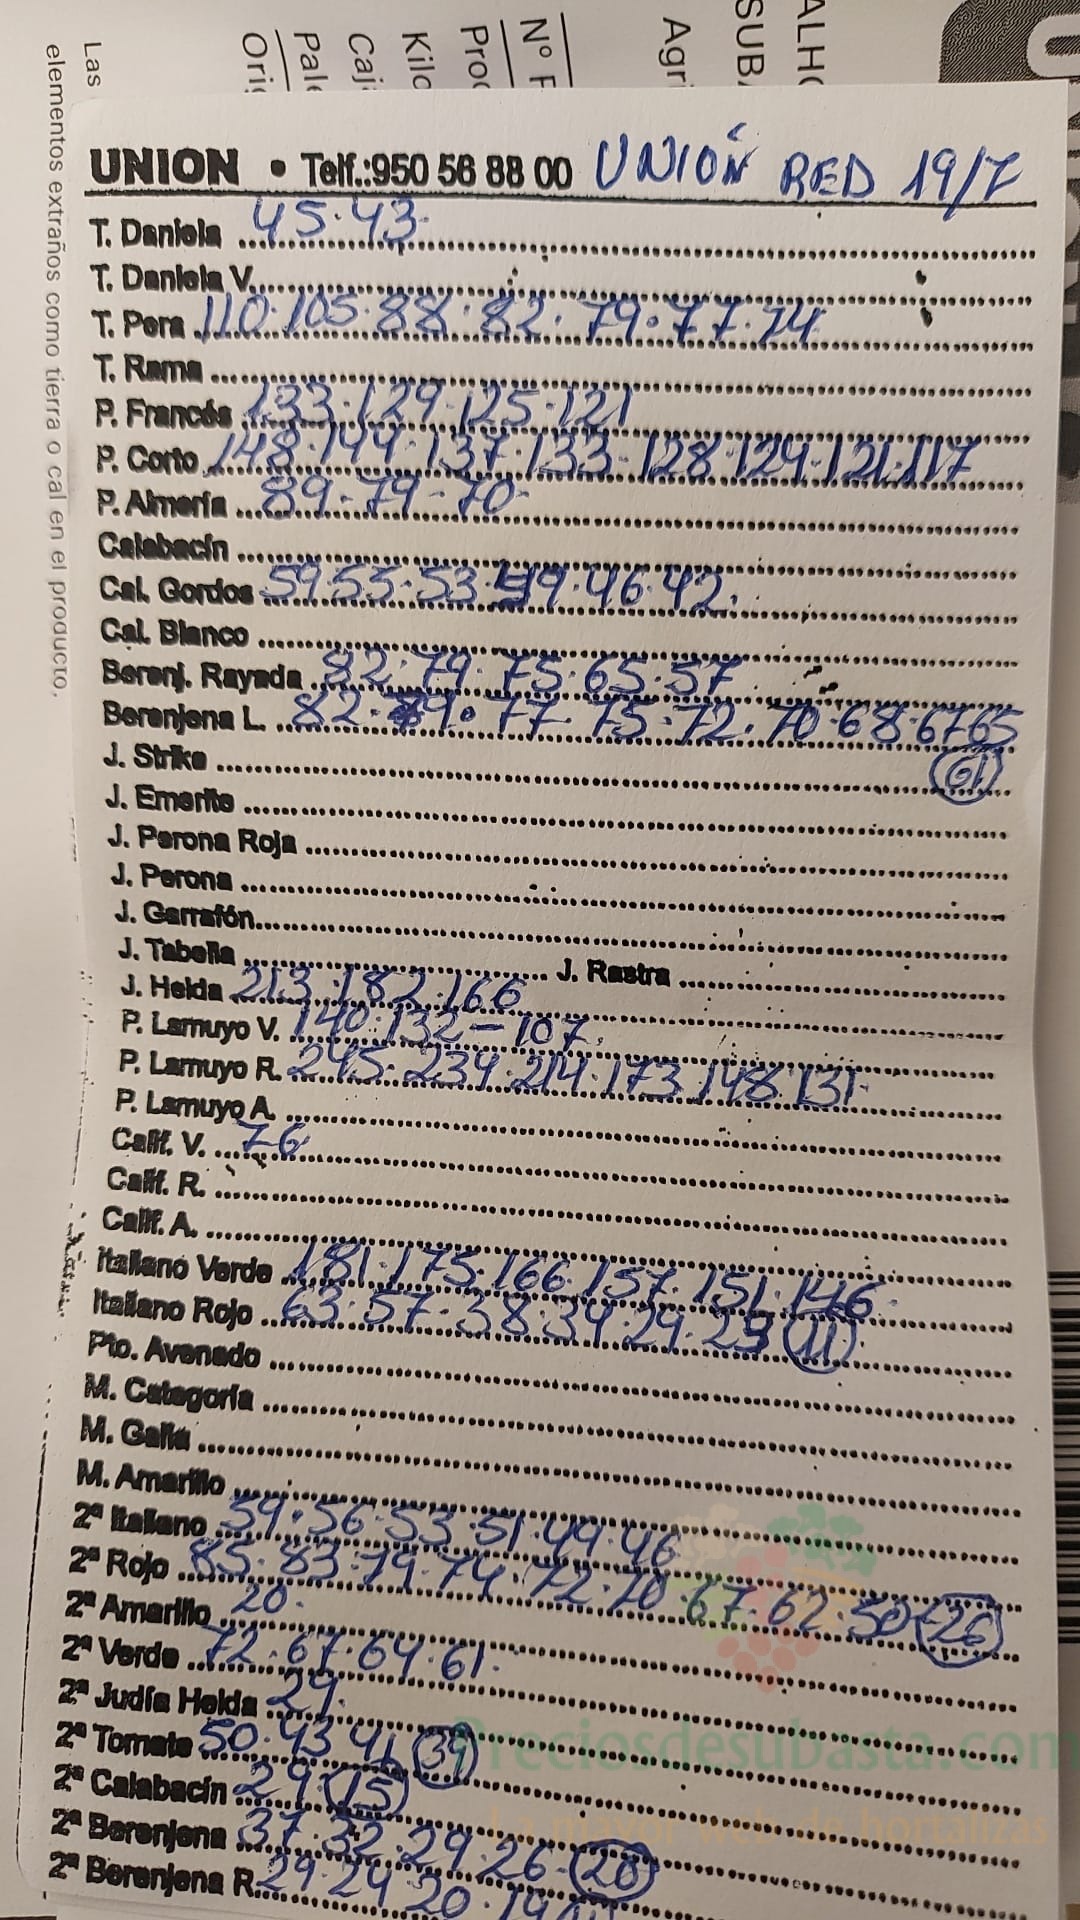 ALHO
SUB
Agri
Nº F
Prod
Kilo
Caj
Pale
Orig
Las
elementos extraños como tierra o cal en el producto,
UNION • Telf.:950 56 88 00 UNIÓN RED 19/7
T. Daniela 45.43
T. Daniela V.
T. Pera 110.105.88.82.79.77.74
T. Rama
P. Francés 133.129.125.121
P. Corto 148.144.137.133.128.124.121.117
P. Almería 89-79-70
Calabacín
Cal. Gordos 59.55.53.49.46.42.
Cal. Blanco
Berenj. Rayada 82.79.75.65.57
Berenjena L. 82.79.77.75.72.70.68.67.65
(61)
J. Strike
J. Emerite
J. Perona Roja
J. Perona
J. Garrafón
J. Tabella J. Rastra
J. Helda 213.182.166
P. Lamuyo V. 140.132-107.
P. Lamuyo R. 245.234.214.173.148.131
P. Lamuyo A.
Calif. V. 76
Calif. R.
Calif. A.
Italiano Verde 181.175.166.157.151.146
Italiano Rojo 63.57.38.34.29. (11)
Pto. Avenado
M. Categoría
M. Galia
M. Amarillo
2ª Italiano 59.56.53.51.49.46
2ª Rojo 85.83.79.74.72.70.67.62.50 (26)
2ª Amarillo 20.
2ª Verde 72.67.64.61.
2ª Judía Helda 29.
2ª Tomate 50.43.41 (39)
Preciosdesubasta.com
2ª Calabacín 29.(15)
La mayor web de hortalizas
2ª Berenjena 37.32.29.26.(20)
2ª Berenjena R. 29.24.20.19